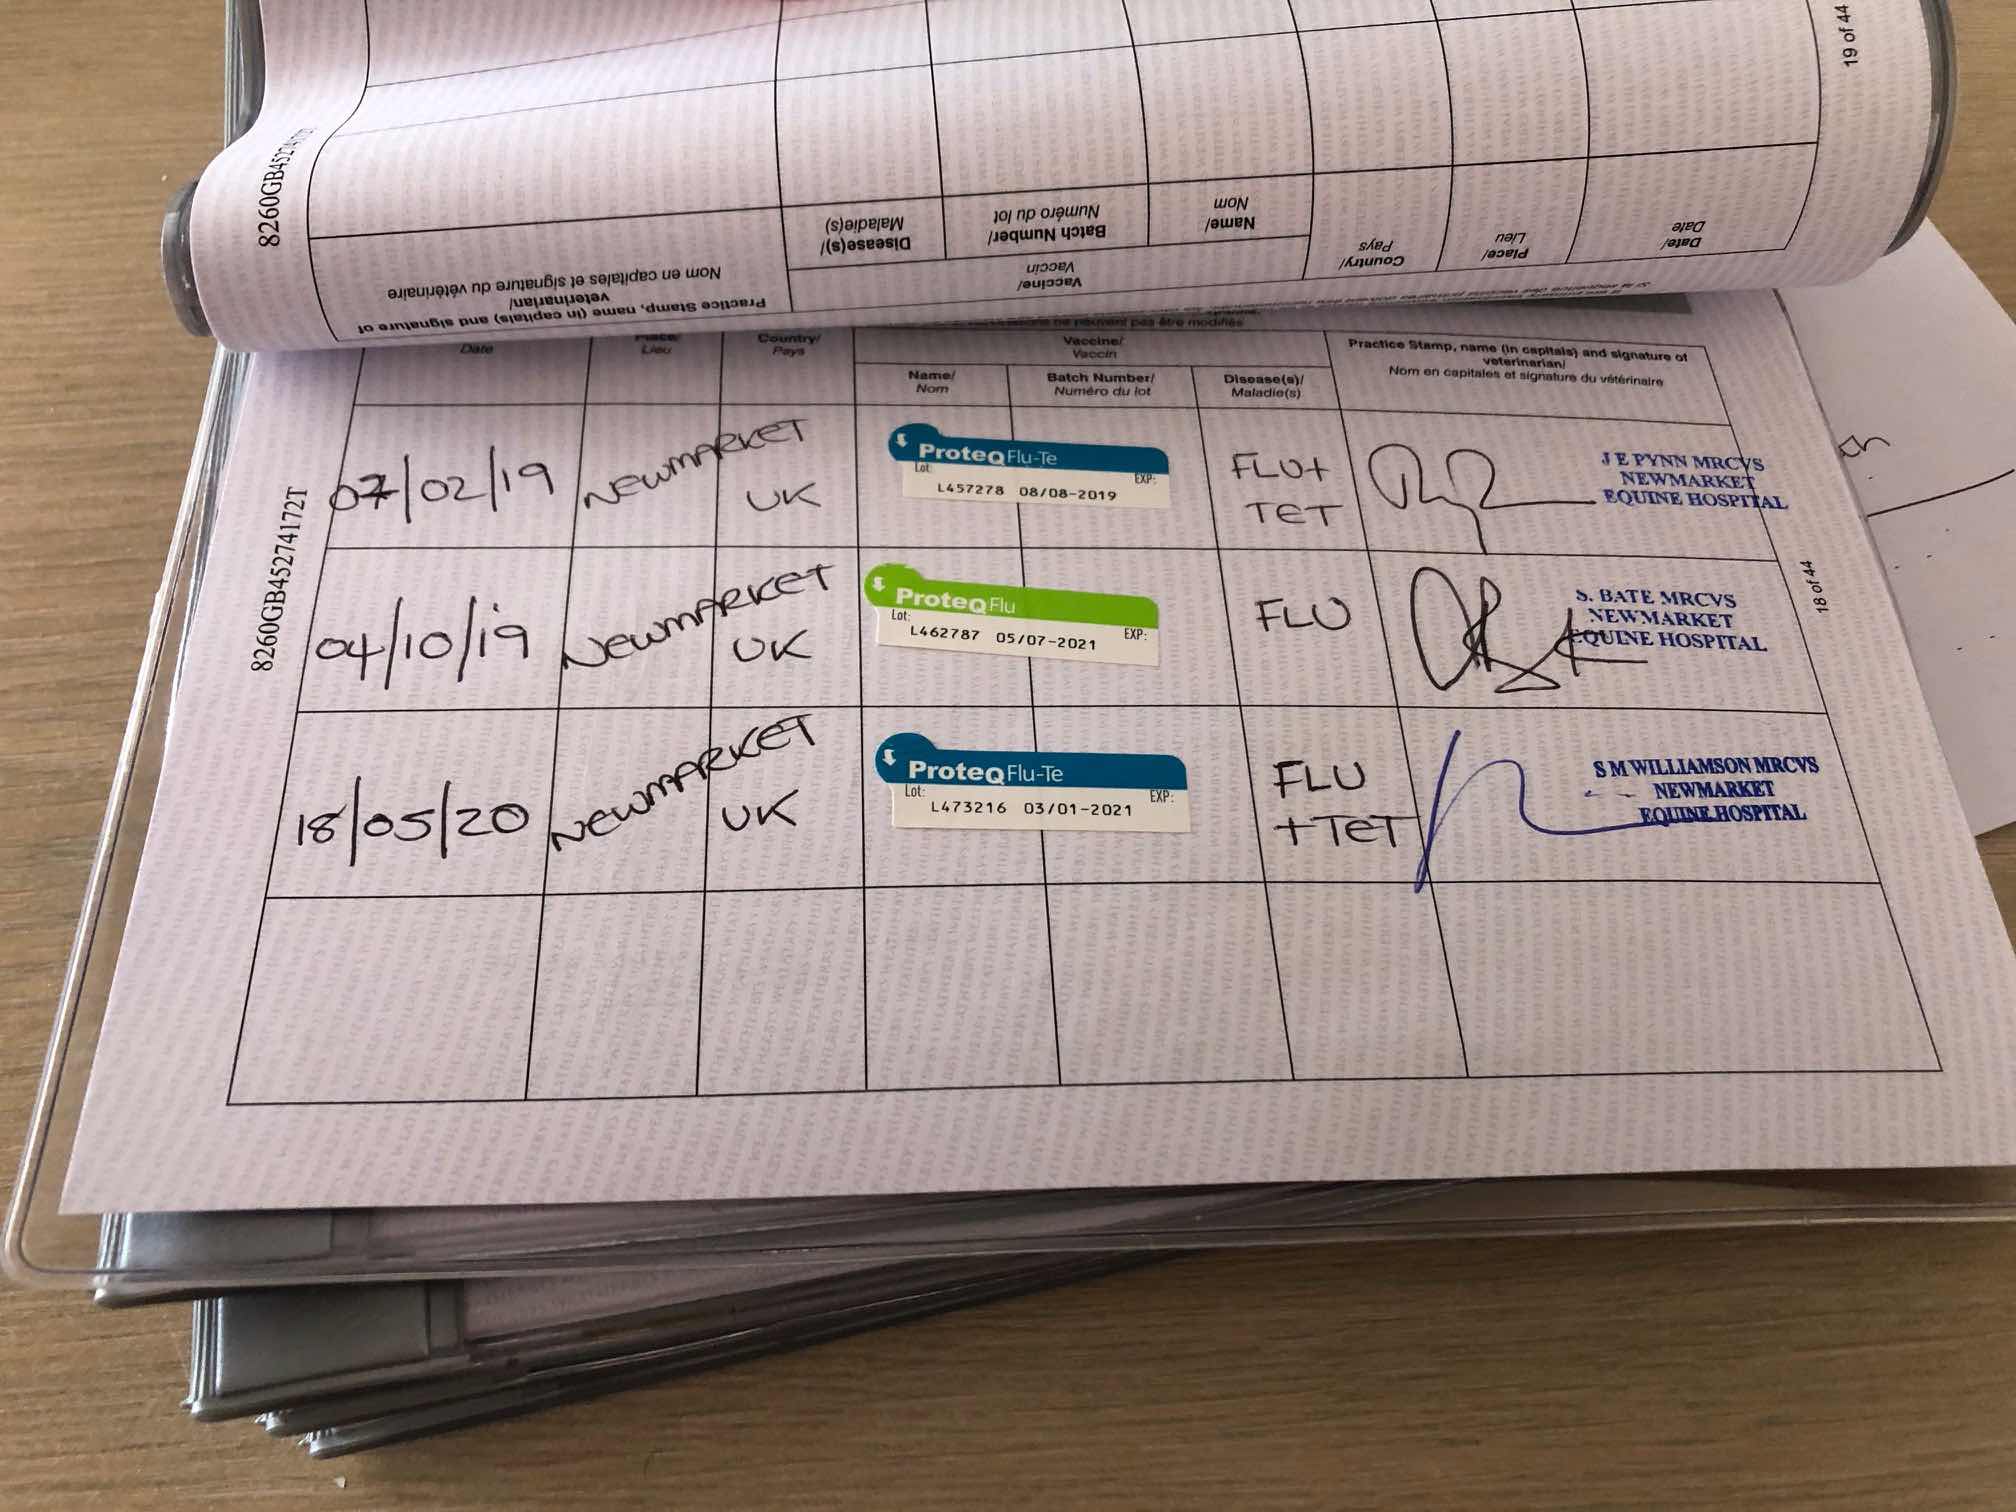 19 of 44
8260GB45274172T
Practice Stamp, name (in capitals) and signature of
veterinarian/
Nom en capitales et signature du vétérinaire
Vaccine/
Vaccin
Disease(s)/
Maladie(s)
Batch Number/
Numéro du lot
Name/
Nom
Country/
Pays
Place/
Lieu
Date/
Date
ne peuvent pas être modifiés
Date
Place/
Lieu
Country/
Pays
Vaccine/
Vaccin
Name/
Nom
Batch Number/
Numéro du lot
Disease(s)/
Maladie(s)
Practice Stamp, name (in capitals) and signature of
veterinarian/
Nom en capitales et signature du vétérinaire
07/02/19
NEWMARKET
UK
ProteqFlu-Te
Lot: EXP:
L457278 08/08-2019
FLU+
TET
J E PYNN MRCVS
NEWMARKET
EQUINE HOSPITAL
04/10/19
NEWMARKET
UK
ProteqFlu
Lot: EXP:
L462787 05/07-2021
FLU
S. BATE MRCVS
NEWMARKET
EQUINE HOSPITAL
18/05/20
NEWMARKET
UK
ProteqFlu-Te
Lot: EXP:
L473216 03/01-2021
FLU
+TET
S M WILLIAMSON MRCVS
NEWMARKET
EQUINE HOSPITAL
8260GB45274172T
18 of 44